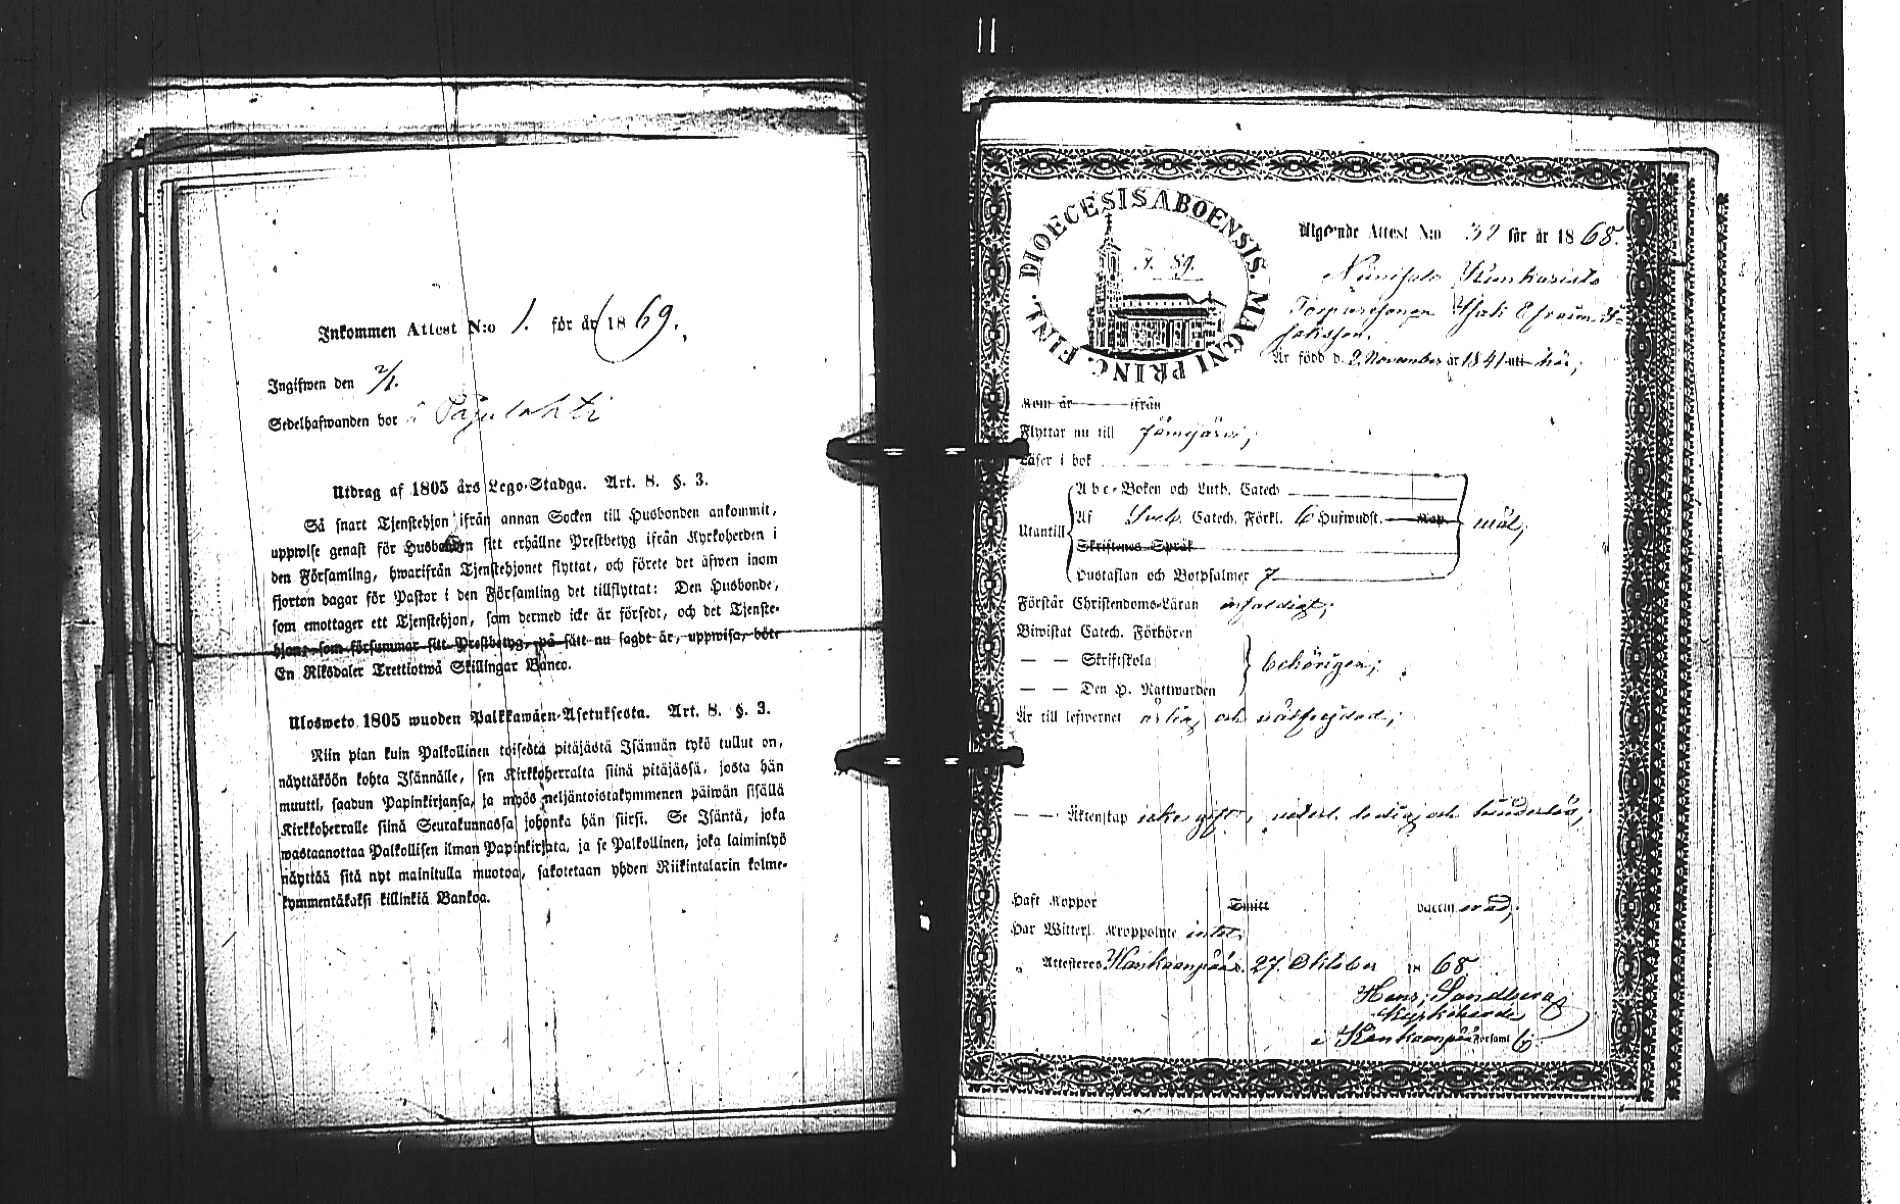 Inkommen Attest N:o 1. för år 1869.
Ingifwen den 2/1.
Sedelhafwanden bor å Pajulahti
Utdrag af 1805 års Lego-Stadga. Art. 8. §. 3.
Så snart Tjenstehjon ifrån annan Socken till Husbonden ankommit,
uppwise genast för Husbonden sitt erhållne Prestbetyg ifrån Kyrkoherden i
den Församling, hwarifrån Tjenstehjonet flyttat, och förete det äfwen inom
fjorton dagar för Pastor i den Församling det tillflyttat: Den Husbonde,
som emottager ett Tjenstehjon, som dermed icke är försedt, och det Tjenste-
hjon, som försummar sitt Prestbetyg, på sätt nu sagdt är, uppwisa, böte
En Riksdaler Trettiotwå Skillingar Banco.
Ulosweto 1805 wuoden Palkkawäen-Asetuksesta. Art. 8. §. 3.
Niin pian kuin Palkollinen toisesta pitäjästä Isännän tykö tullut on,
näyttäköön kohta Isännälle, sen Kirkkoherralta siinä pitäjässä, josta hän
muutti, saadun Papinkirjansa, ja myös neljäntoistakymmenen päiwän sisällä
Kirkkoherralle siinä Seurakunnassa johonka hän siirsi. Se Isäntä, joka
wastaanottaa Palkollisen ilman Papinkirjata, ja se Palkollinen, joka laiminlyö
näyttää sitä nyt mainitulla muotoa, sakotetaan yhden Riikintalarin kolme-
kymmentäkaksi killinkiä Bankoa.
DIOECESIS ABOENSIS. MAGNI PRINC. FINL.
Utgående Attest N:o 32 för år 1868.
Niinisalo
Isak Efraim
Är född d. 2 November år 1841 uti här;
Kom år ifrån
Flyttar nu till Jämijärvi;
Läser i bok
Abc-Boken och Luth. Catech
Utantill
Af Sveb. Catech. Förkl. 6 Hufwudst. Kap.
Skriftenes Språk
Hustaflan och Botpsalmer 7
Förstår Christendoms-Läran enfaldigt;
Biwistat Catech. Förhören
— — Skriftskola behörigen;
— — Den H. Nattwarden
Är till lefwernet ärlig och
— — Äktenskap icke gift, ledig och hinderslös;
Haft Koppor Smitt Vaccinerad;
Har Witterl. Kroppslyte intet.
Attesteras Kankaanpää d. 27. Oktober 1868
Sandberg
Kyrkoherde
i Kankaanpää Församl